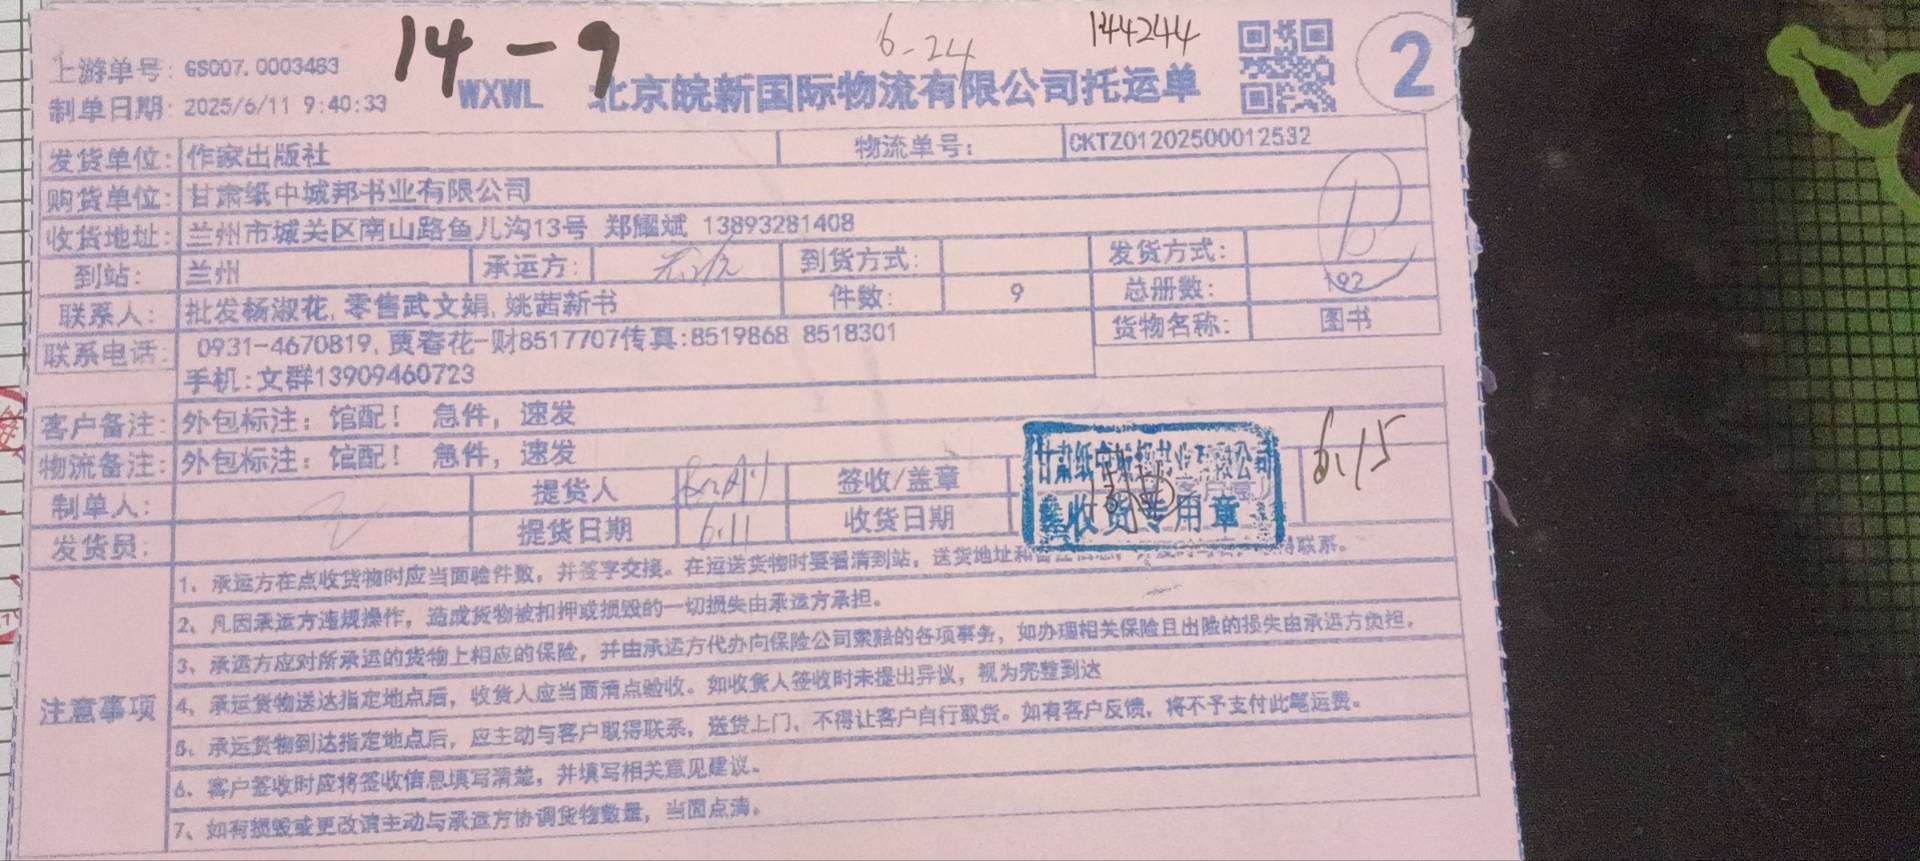 14-9
6-24
144244
上游单号: GSC07.0003483
制单日期: 2025/6/11 9:40:33
WXWL 北京皖新国际物流有限公司托运单
2
发货单位: 作家出版社 物流单号: CKTZ01202500012532
购货单位: 甘肃纸中城邦书业有限公司
收货地址: 兰州市城关区南山路鱼儿沟13号 郑耀斌 13893281408
到站: 兰州 承运方: 到货方式: 发货方式:
联系人: 批发杨淑花,零售武文娟,姚茜新书 件数: 9 总册数: 192
联系电话: 0931-4670819,贾春花-财8517707传真:8519868 8518301 货物名称: 图书
手机:文群13909460723
客户备注: 外包标注: 馆配! 急件, 速发
物流备注: 外包标注: 馆配! 急件, 速发
制单人: 提货人 签收/盖章 6.15
发货员: 提货日期 6.11 收货日期
甘肃纸中城邦书业有限公司
收货专用章
注意事项
1、承运方在点收货物时应当面验件数，并签字交接。在运送货物时要看清到站，送货地址和 联系。
2、凡因承运方违规操作，造成货物被扣押或损毁的一切损失由承运方承担。
3、承运方应对所承运的货物上相应的保险，并由承运方代办向保险公司索赔的各项事务，如办理相关保险且出险的损失由承运方负担。
4、承运货物送达指定地点后，收货人应当面清点验收。如收货人签收时未提出异议，视为完整到达
5、承运货物到达指定地点后，应主动与客户取得联系，送货上门，不得让客户自行取货。如有客户反馈，将不予支付此笔运费。
6、客户签收时应将签收信息填写清楚，并填写相关意见建议。
7、如有损毁或更改请主动与承运方协调货物数量，当面点清。